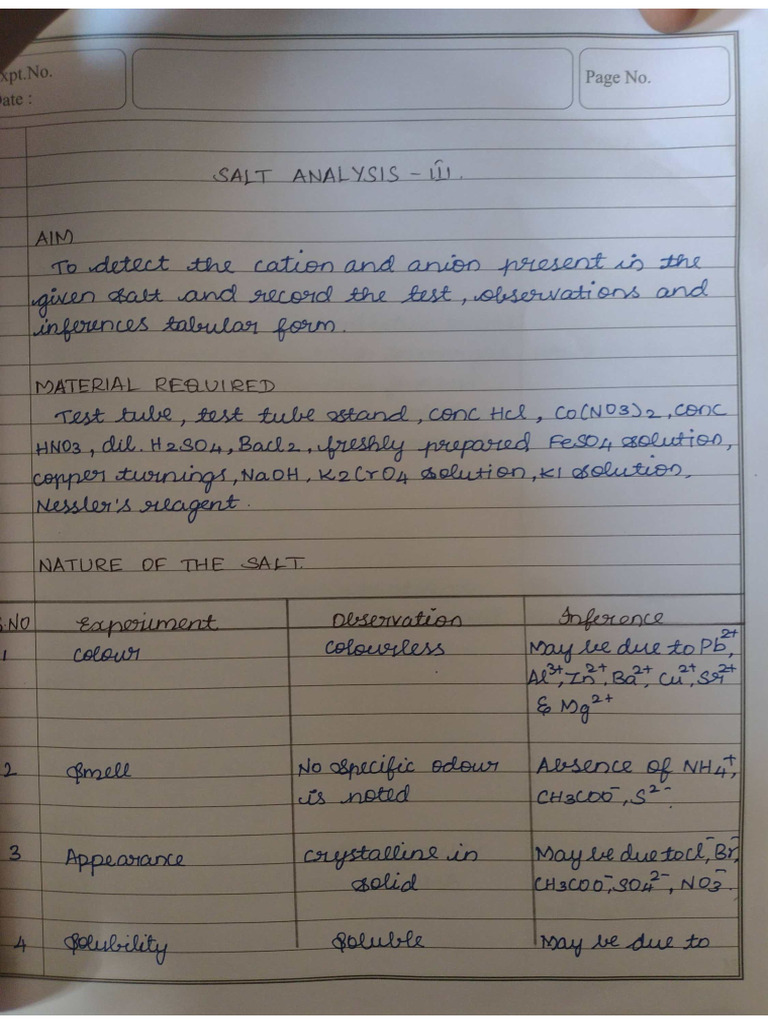 xpt.No.
Date :
Page No.
SALT ANALYSIS - III.
AIM
To detect the cation and anion present in the
given salt and record the test, observations and
inferences tabular form.
MATERIAL REQUIRED
Test tube, test tube stand, conc Hcl, Co(NO3)2, conc
HNO3, dil. H2SO4, Bacl2, freshly prepared FeSO4 solution,
copper turnings, NaOH, K2CrO4 solution, KI solution,
Nessler's reagent.
NATURE OF THE SALT.
S.NO Experiment Observation Inference
1 colour colourless May be due to Pb2+,
Al3+, Zn2+, Ba2+, Cu2+, Sr2+
& Mg2+
2 Smell No specific odour Absence of NH4+,
is noted CH3COO-, S2-.
3 Appearance crystalline in May be due to cl-, Br-,
solid CH3COO-, SO42-, NO3-.
4 Solubility Soluble May be due to